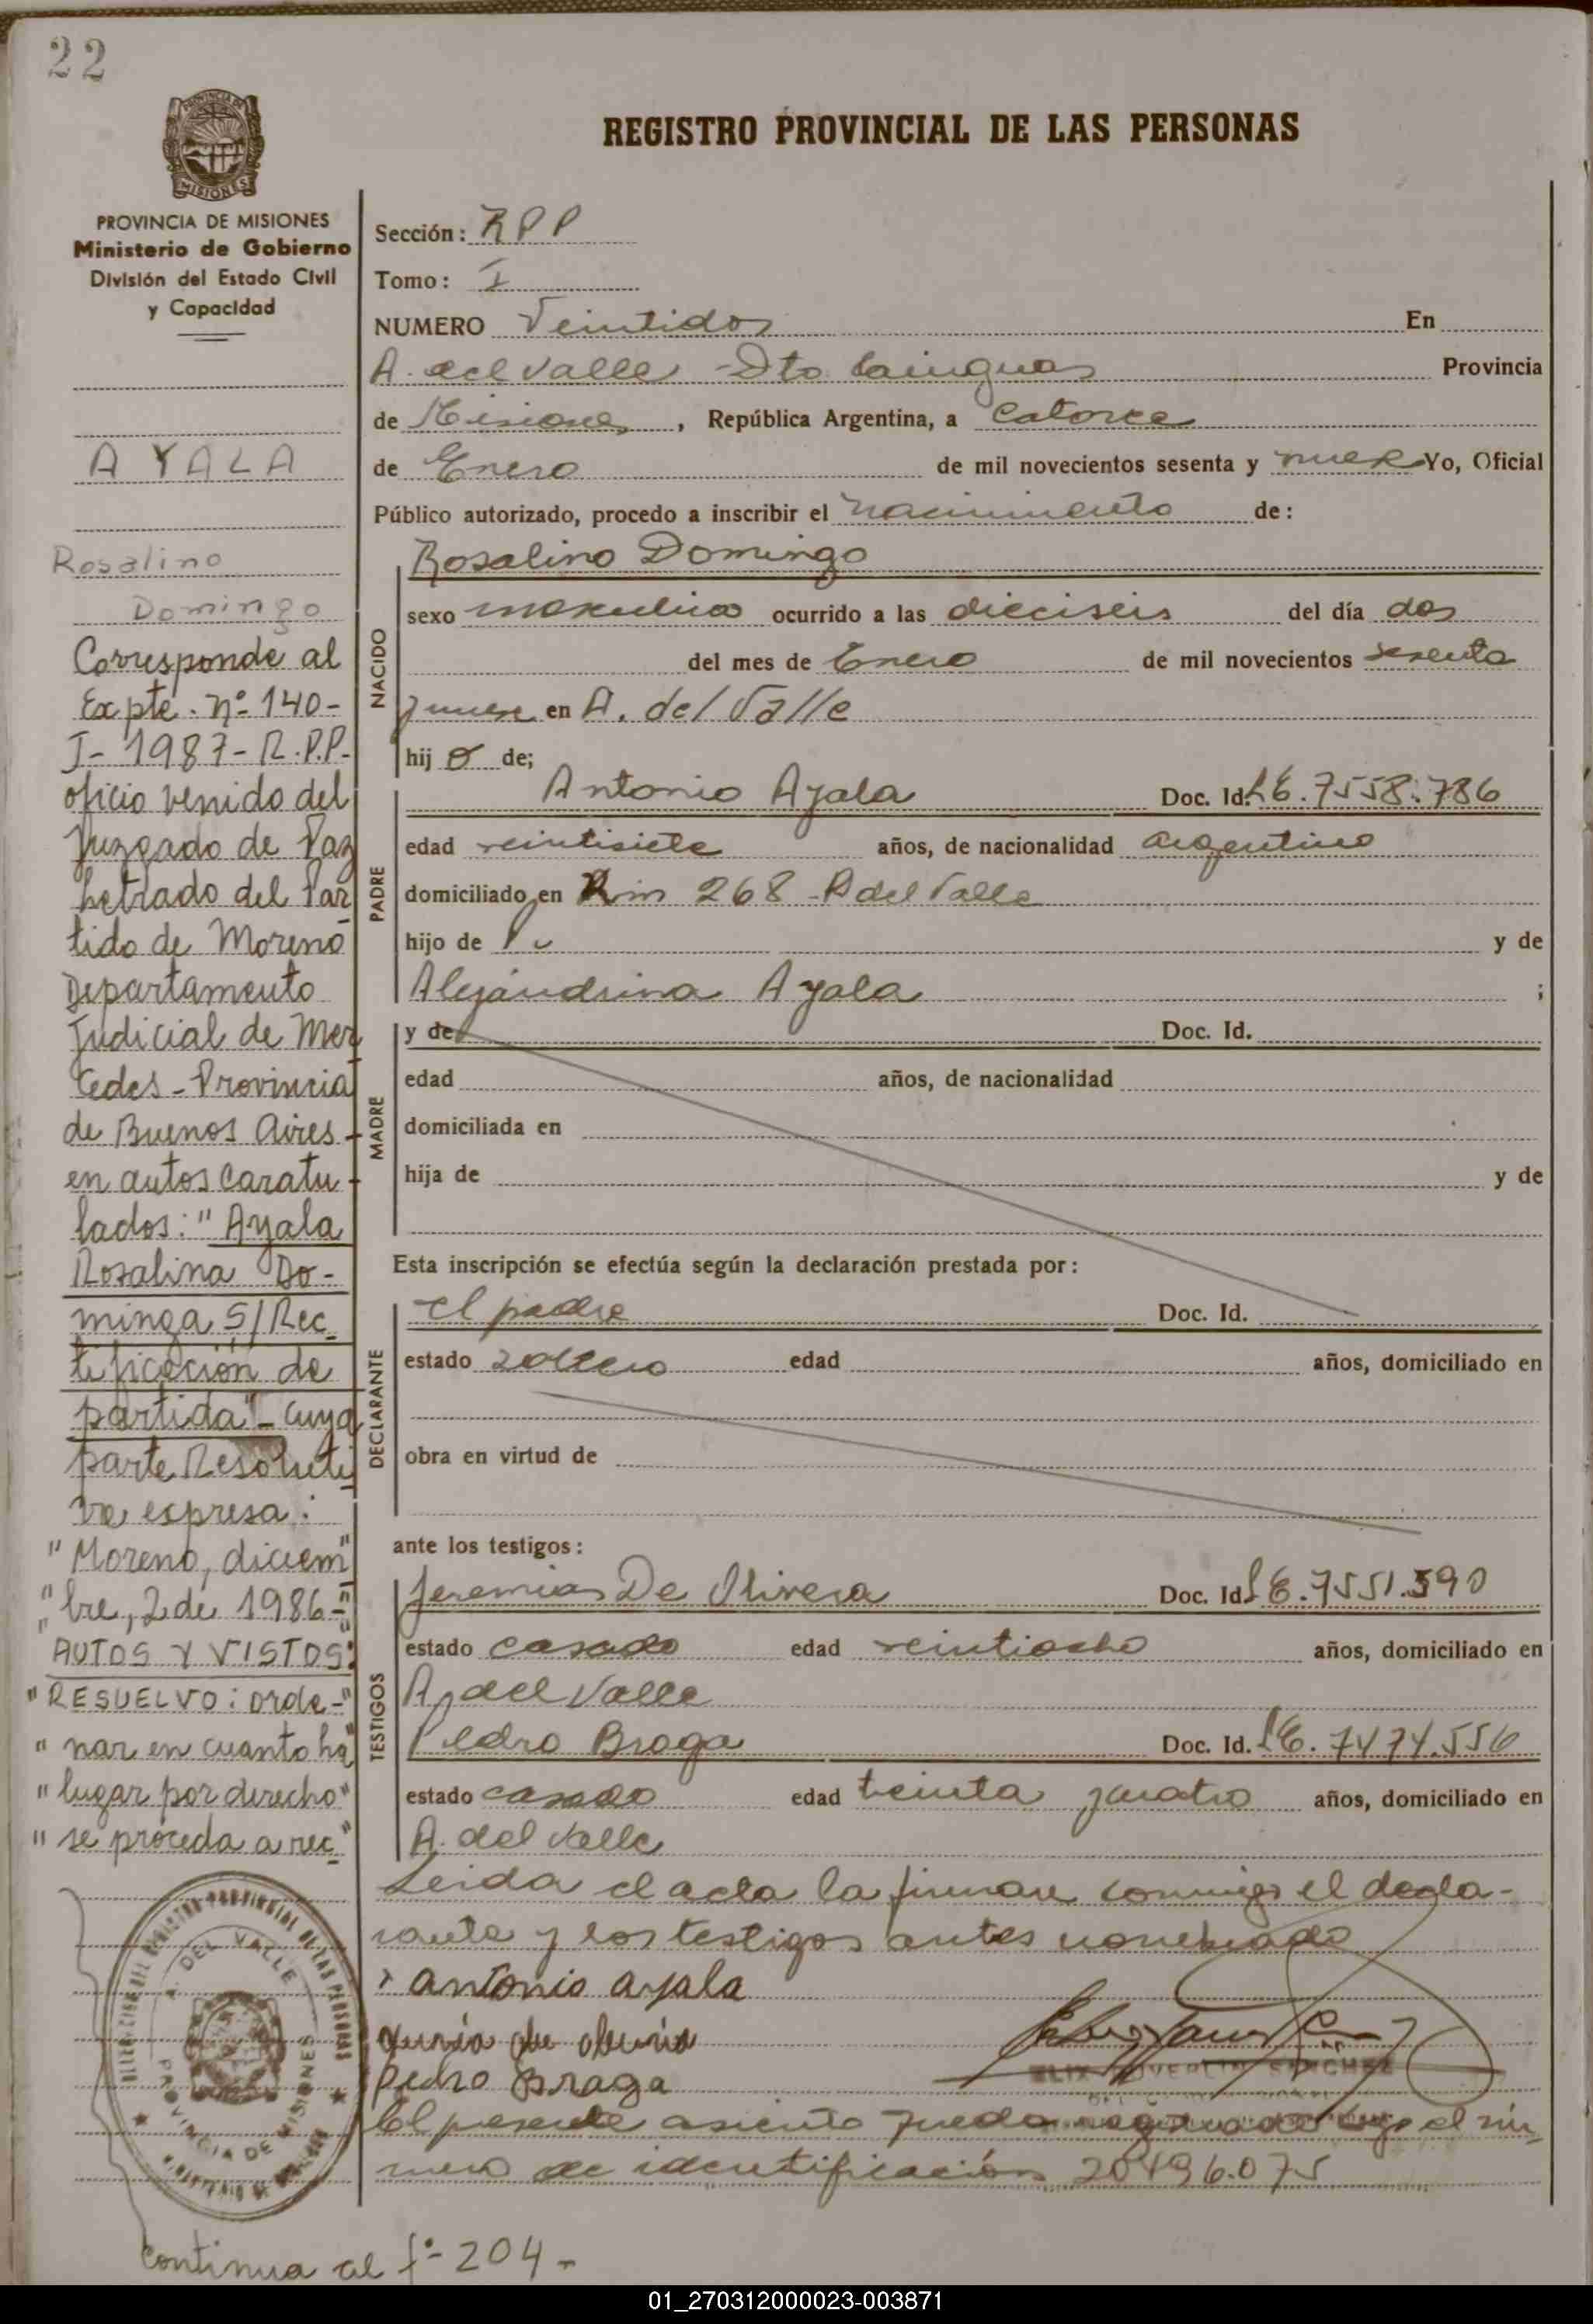 22
PROVINCIA DE MISIONES
Ministerio de Gobierno
División del Estado Civil
y Capacidad
AYALA
Rosalino
Domingo
Corresponde al
Expte. nº 140-
I- 1987- R.P.P.
oficio venido del
Juzgado de Paz
Letrado del Par
tido de Moreno
Departamento
Judicial de Mer
cedes - Provincia
de Buenos Aires -
en autos caratu -
lados: "Ayala
Rosalina Do-
minga S/Rec
tificación de
partida" - cuya
parte Resoluti
va expresa:
"Moreno, diciem"
"bre, 2 de 1986-"
AUTOS Y VISTOS:
"RESUELVO: orde-"
"nar en cuanto ha"
"lugar por derecho"
"se proceda a rec"
A. DEL VALLE
PROVINCIA DE MISIONES
REGISTRO PROVINCIAL DE LAS PERSONAS
Sección: RPP
Tomo: I
NUMERO Veintidos En
A. del Valle - Dto Cainguas Provincia
de Misiones, República Argentina, a Catorce
de Enero de mil novecientos sesenta y nueve Yo, Oficial
Público autorizado, procedo a inscribir el nacimiento de:
NACIDO
Rosalino Domingo
sexo masculino ocurrido a las dieciseis del día dos
del mes de Enero de mil novecientos sesenta
y nueve en A. del Valle
hij o de;
PADRE
Antonio Ayala Doc. Id. LE.7558.786
edad veintisiete años, de nacionalidad argentino
domiciliado en 268 - A del Valle
hijo de y de
Alejandrina Ayala ;
MADRE
y de Doc. Id.
edad años, de nacionalidad
domiciliada en
hija de y de
Esta inscripción se efectúa según la declaración prestada por:
DECLARANTE
el padre Doc. Id.
estado soltero edad años, domiciliado en
obra en virtud de
ante los testigos:
TESTIGOS
Jeremias De Olivera Doc. Id. LE.7551.590
estado casado edad veintiocho años, domiciliado en
A. del Valle
Pedro Braga Doc. Id. LE. 7474.556
estado casado edad treinta y cuatro años, domiciliado en
A. del Valle
Leida el acta la firman conmigo el decla-
rante y los testigos antes nombrado
antonio ayala
Pedro Braga
El presente asiento queda bajo el nú-
mero de identificación 20496.075
Continua al fº- 204 -
01_270312000023-003871